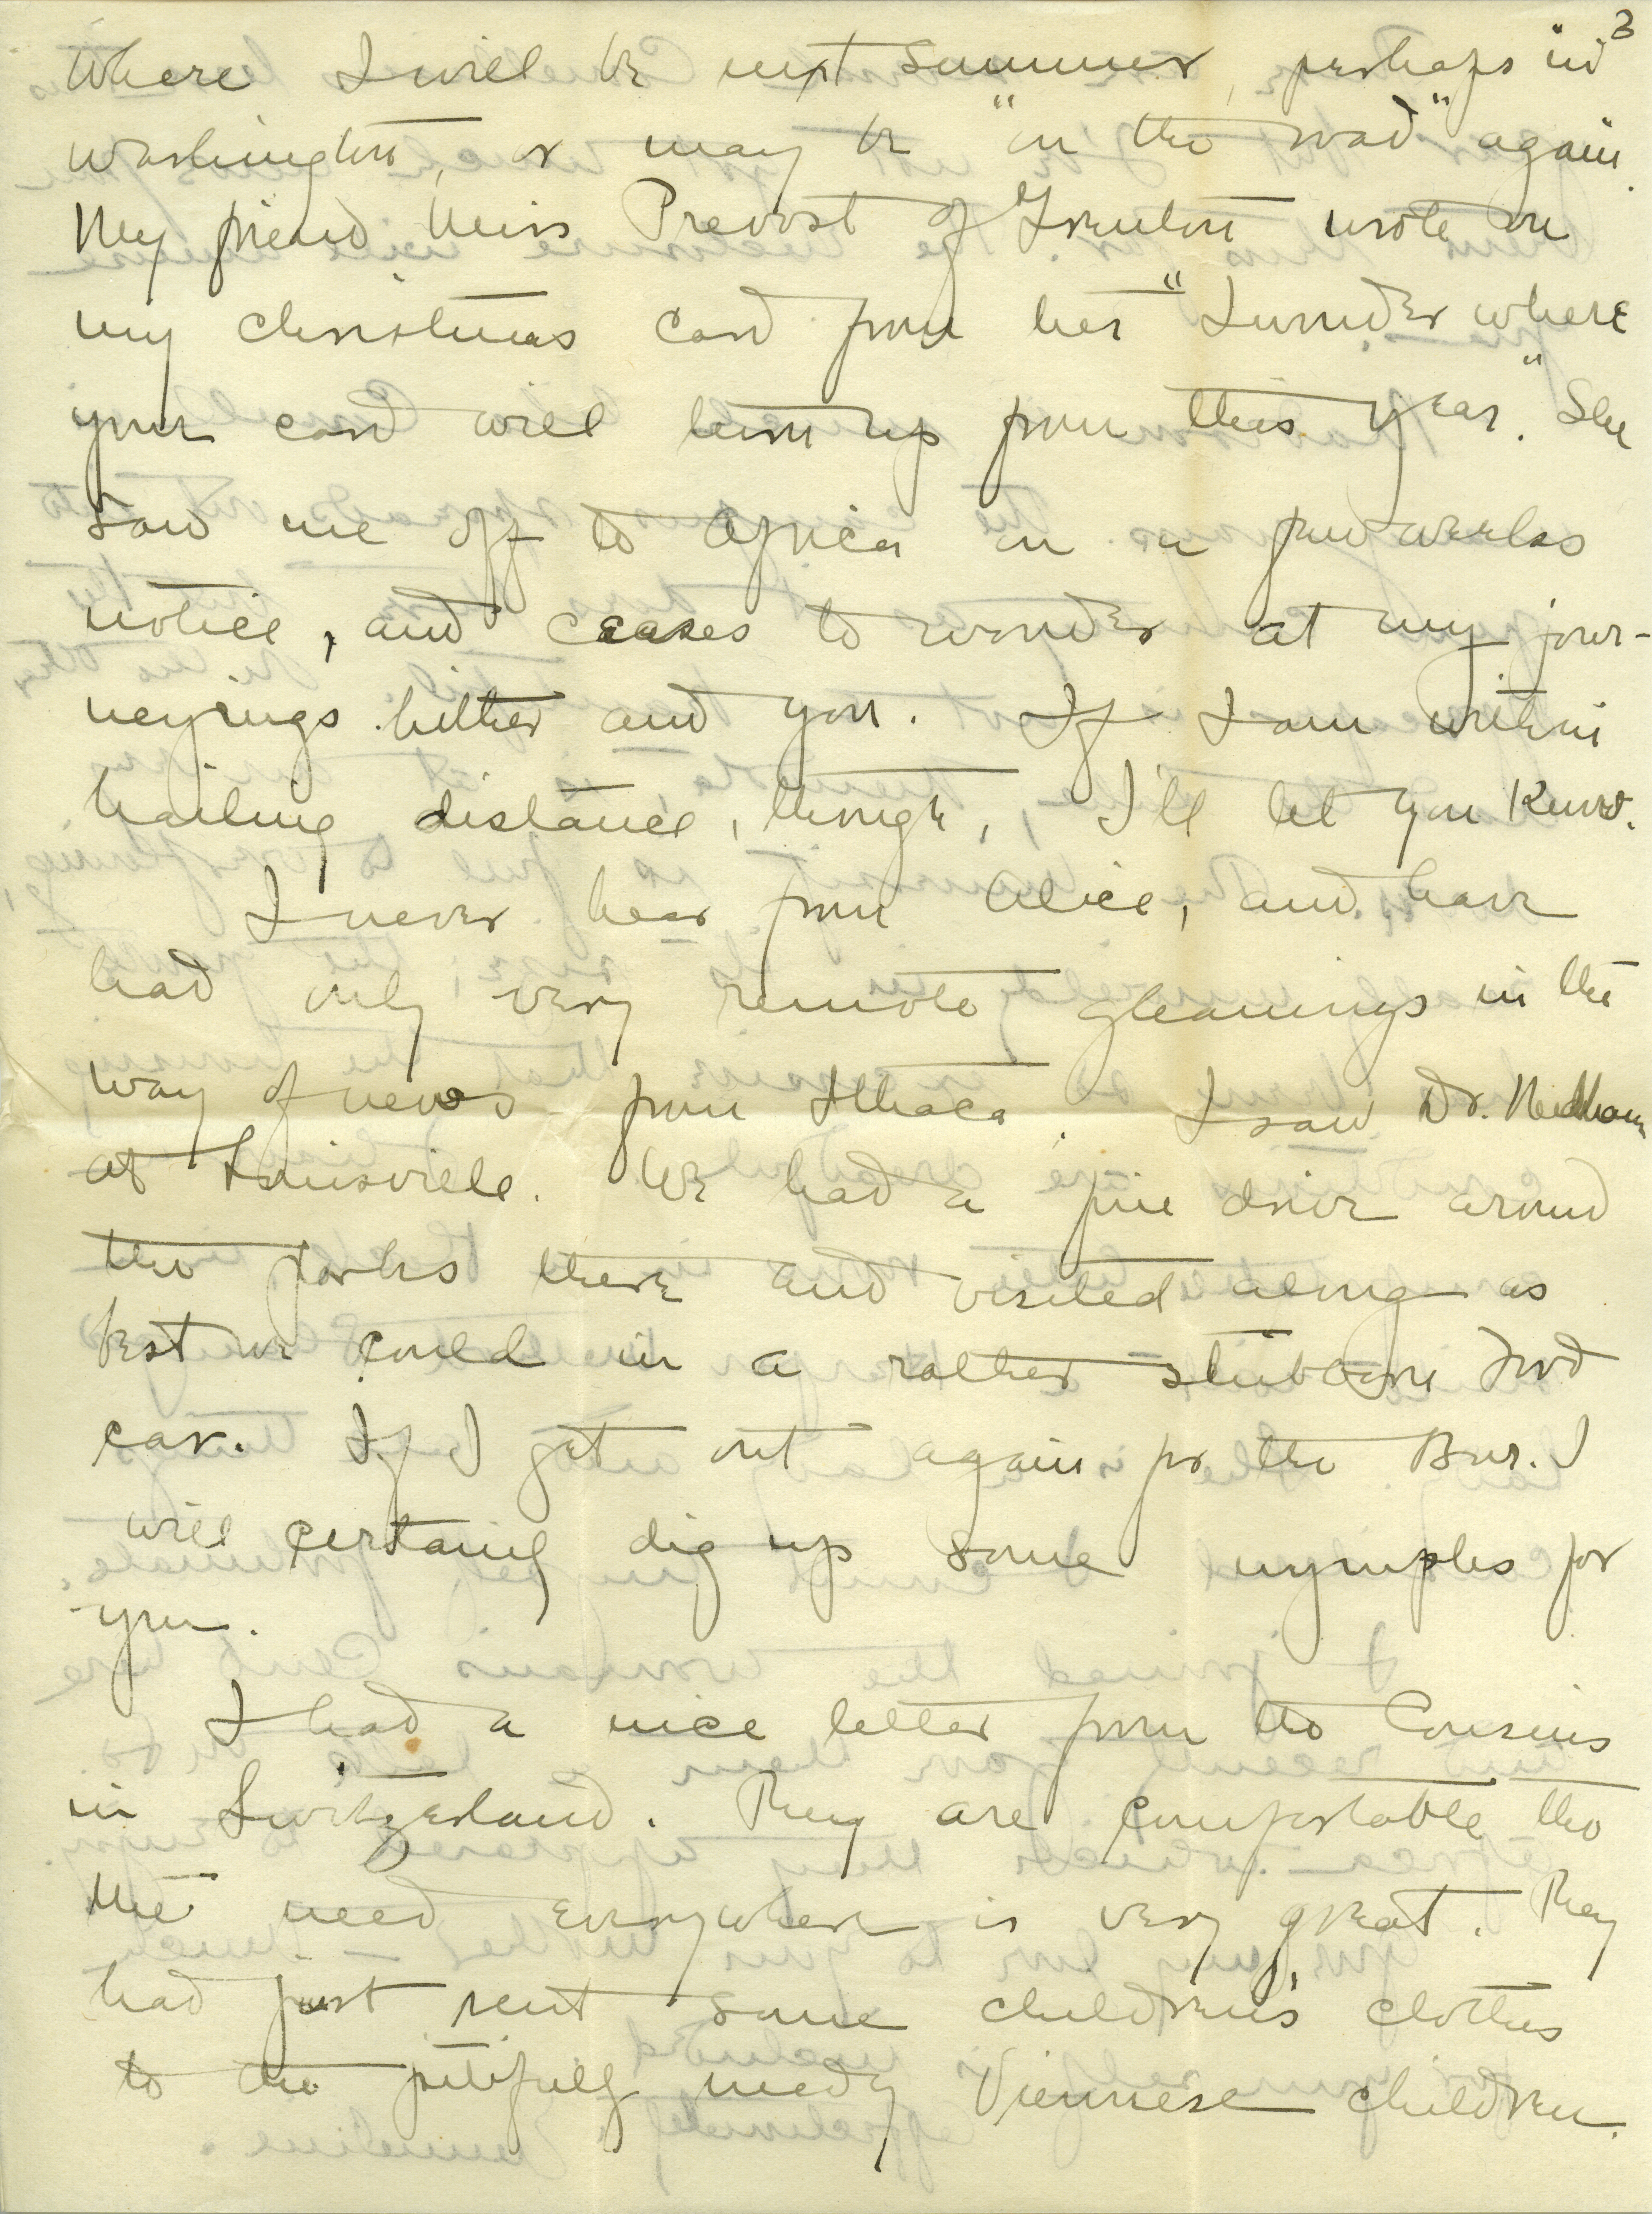 3
where I will be next summer, perhaps in
Washington, or may be "on the road" again.
My friend Miss Prevost of Trenton wrote on
my Christmas card from her "I wonder where
your card will turn up from this year." She
saw me off to Africa on a few weeks
notice, and ceases to wonder at my jour-
neyings hither and yon. If I am within
hailing distance, though, I'll let you know.
I never hear from Alice, and have
had only very remote gleanings in the
way of news from Ithaca. I saw Dr. Needham
at Louisville. We had a fine drive around
the parks there and visited along as
best we could in a rather stubborn Ford
car. If I get out again for the Bur. I
will certainly dig up some nymphs for
you.
I had a nice letter from the Cousins
in Switzerland. They are comfortable tho
the need everywhere is very great. They
had just sent some children's clothes
to the pitifully needy Viennese children.